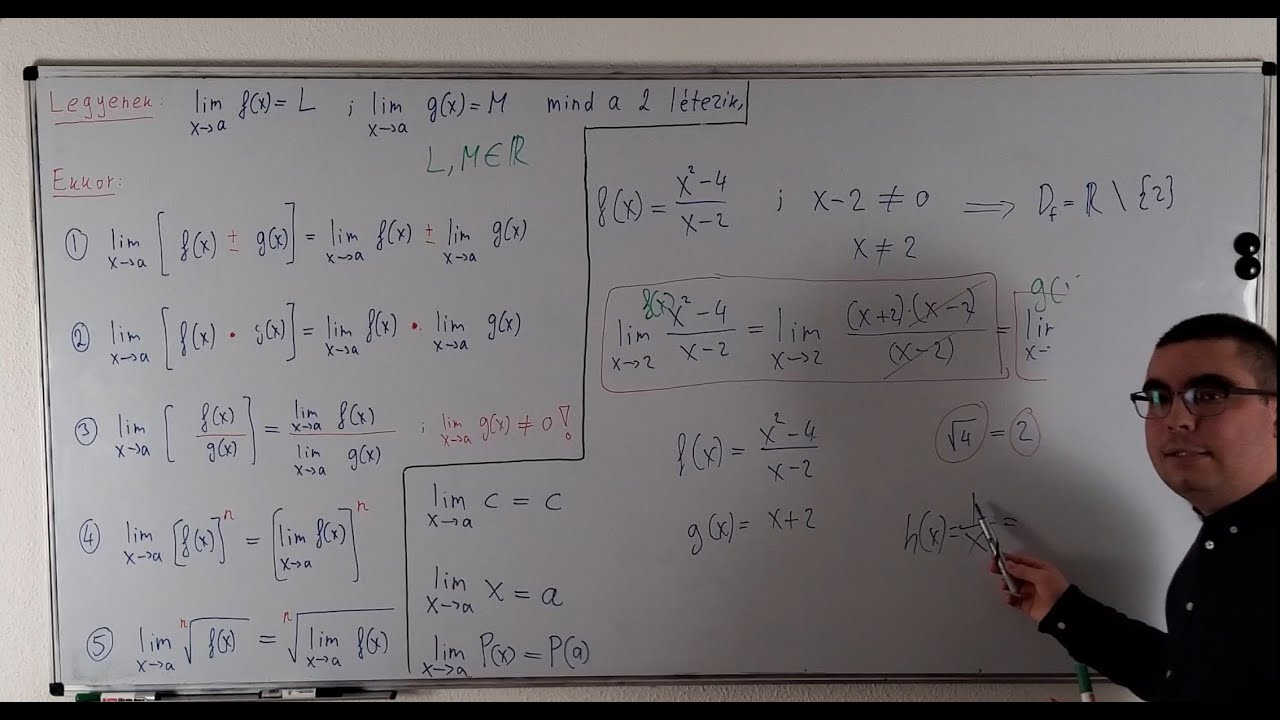 Legyenek: lim x→a f(x) = L ; lim x→a g(x) = M mind a 2 létezik,
L, M ∈ ℝ
Ekkor:
① lim x→a [f(x) ± g(x)] = lim x→a f(x) ± lim x→a g(x)
② lim x→a [f(x) · g(x)] = lim x→a f(x) · lim x→a g(x)
③ lim x→a [f(x)/g(x)] = lim x→a f(x) / lim x→a g(x) ; lim x→a g(x) ≠ 0 !
④ lim x→a [f(x)]^n = [lim x→a f(x)]^n
⑤ lim x→a ⁿ√f(x) = ⁿ√lim x→a f(x)
lim x→a c = c
lim x→a x = a
lim x→a P(x) = P(a)
f(x) = (x²-4)/(x-2) ; x-2 ≠ 0 ⟹ D_f = ℝ \ {2}
x ≠ 2
f(x) g(
lim x→2 (x²-4)/(x-2) = lim x→2 (x+2)·(x-2)/(x-2) = lim x→
f(x) = (x²-4)/(x-2)
√4 = 2
g(x) = x+2
h(x) =